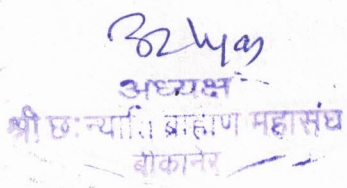 अध्यक्ष
श्री छः न्याति ब्राह्मण महासंघ
बीकानेर